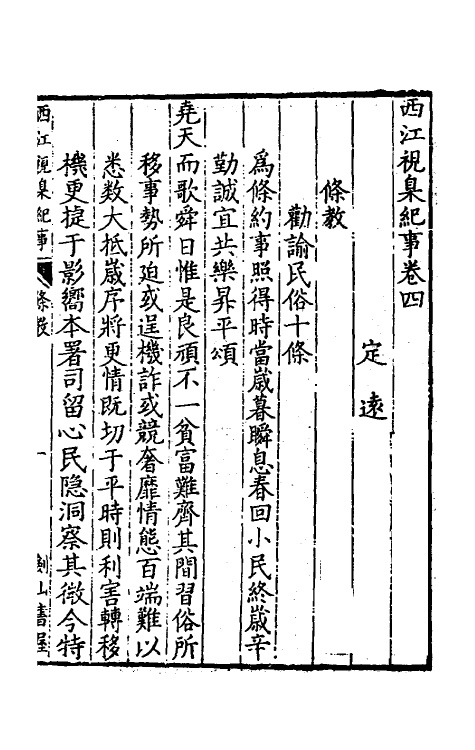 西江視臬紀事卷四
定遠
條教
勸諭民俗十條
爲條約事照得時當嵗暮瞬息春回小民終嵗辛
勤誠宜共樂昇平頌
堯天而歌舜日惟是良頑不一貧富難齊其間習俗所
移事勢所迫或逞機詐或競奢靡情態百端難以
悉数大抵嵗序將更情既切于平時則利害轉移
機更捷于影嚮本署司留心民隐洞察其微今特
西江視臬紀事 條教 一 劍山書屋